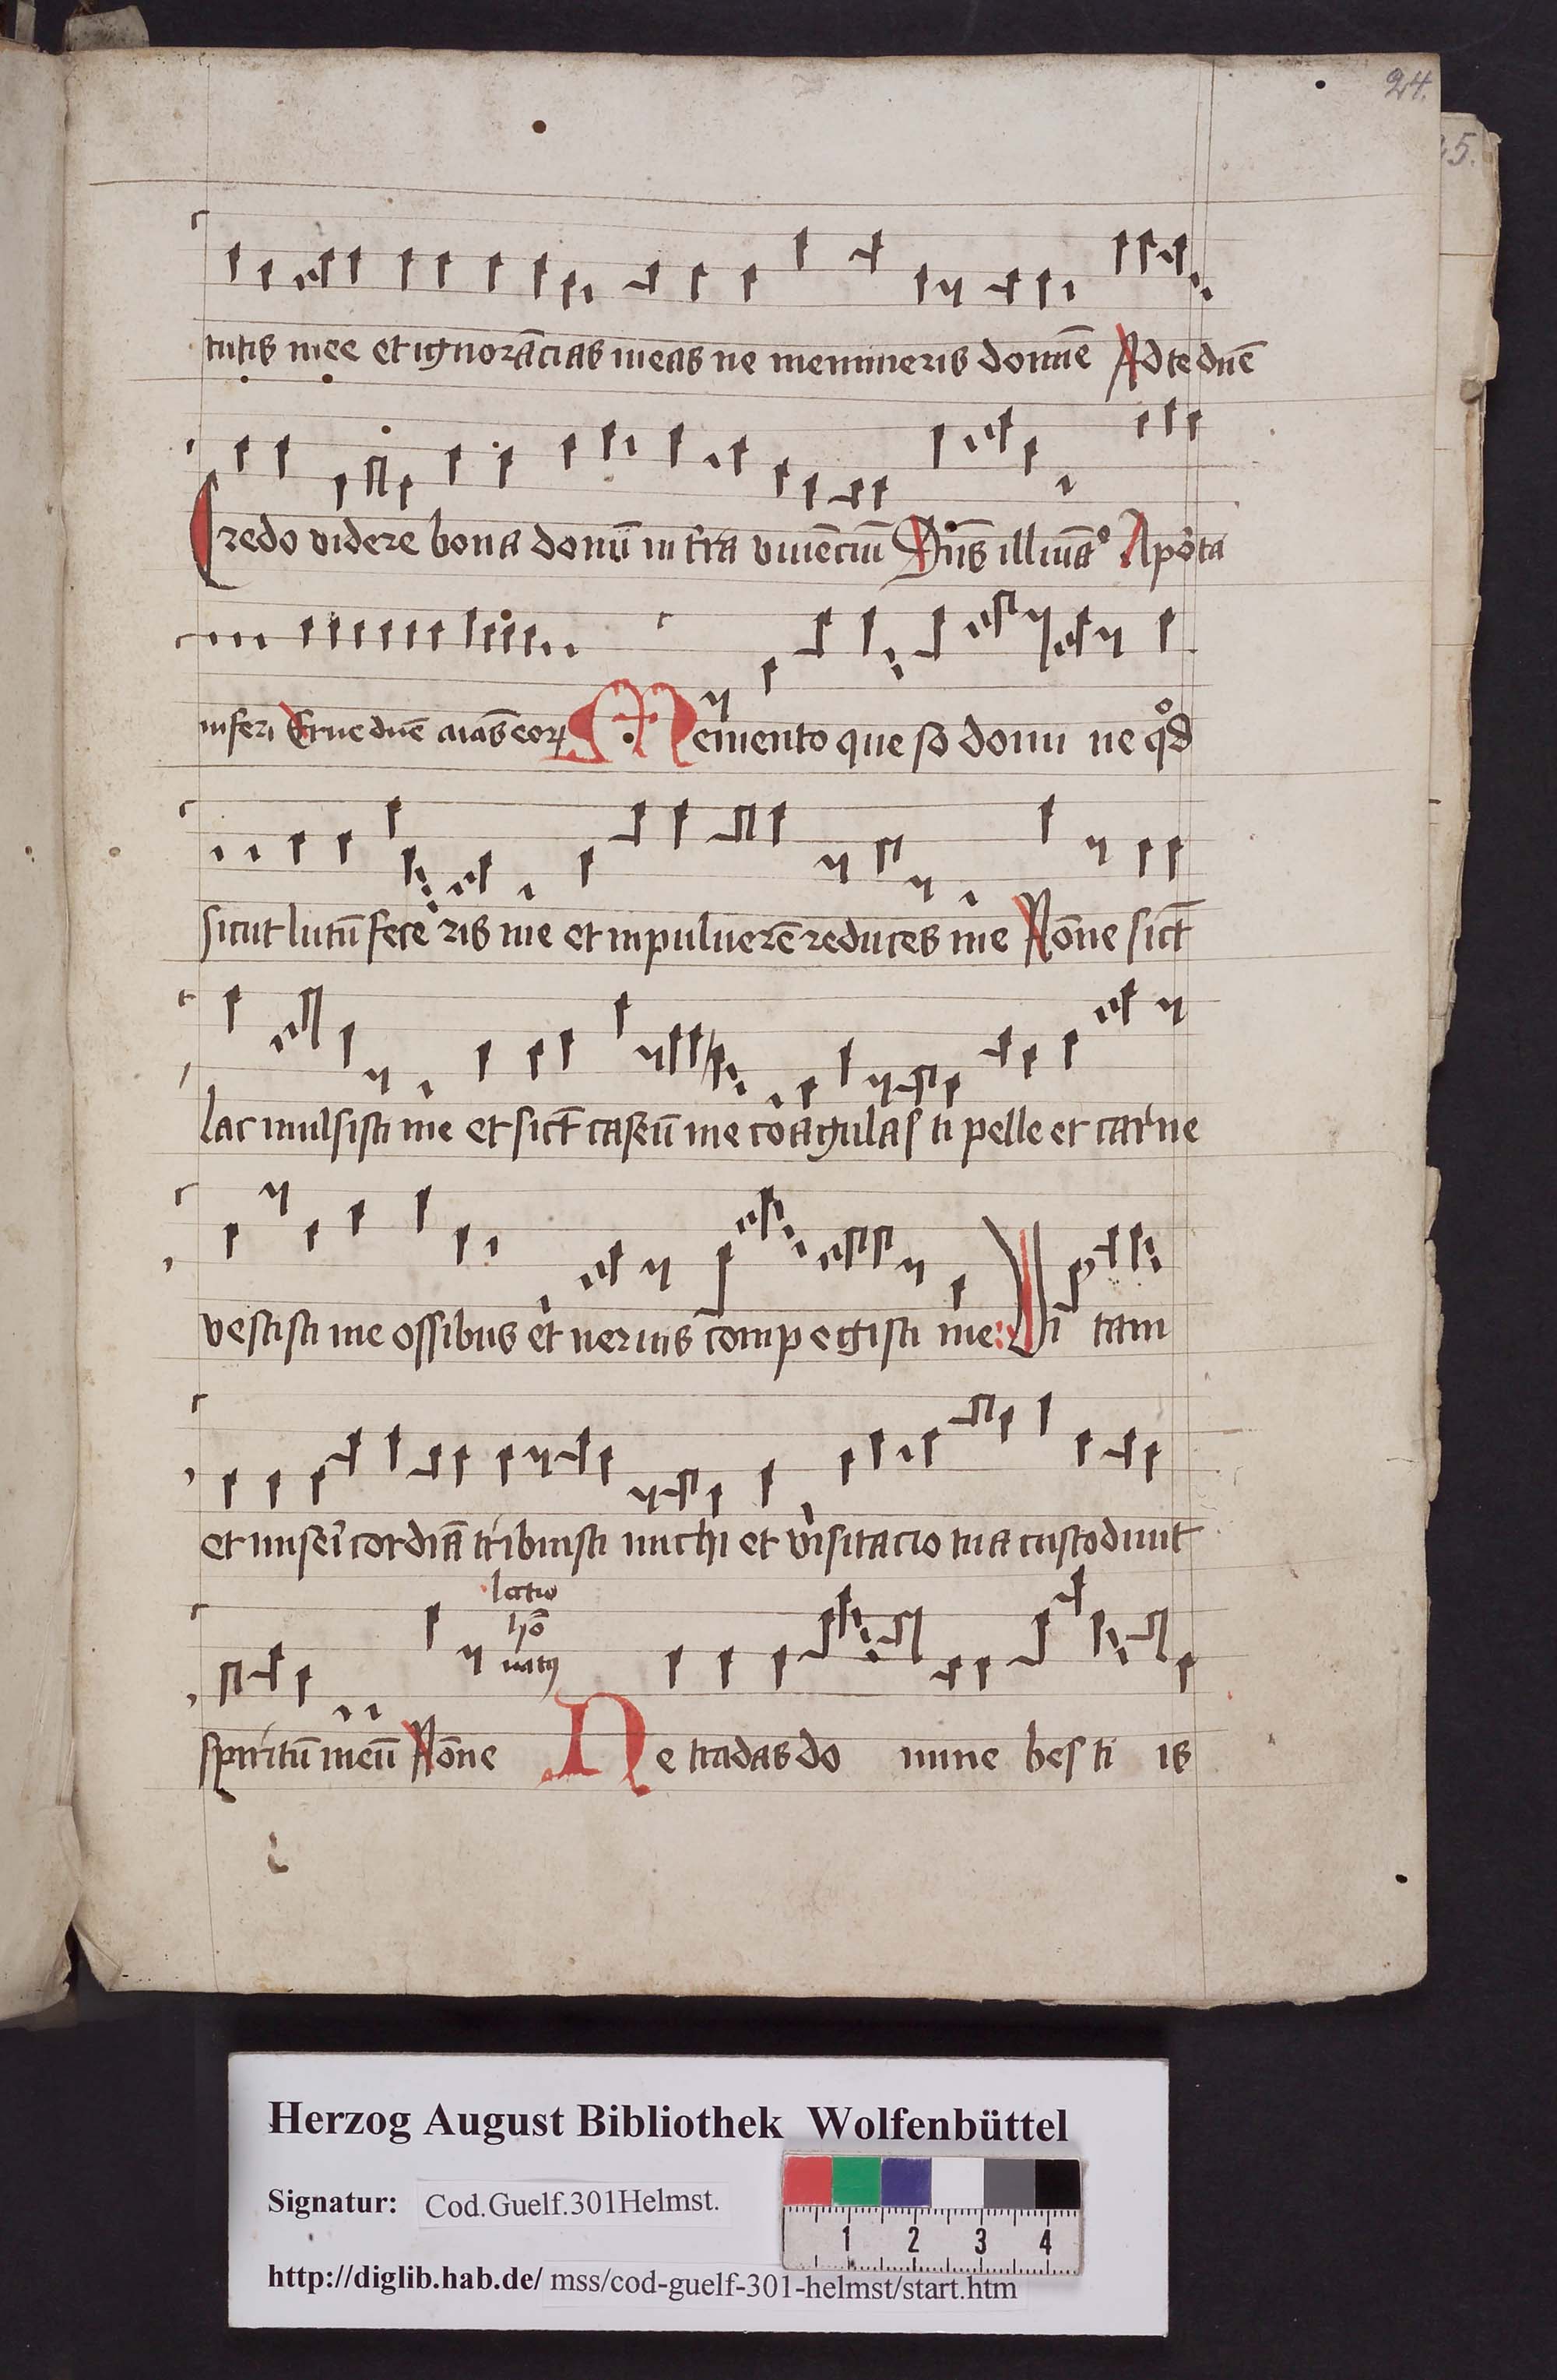 24.
25.
tutis mee et ignorācias meas ne memineris domīe Ad te dn̄e
Credo videre bona domī in t̄ra viuēciū Dn̄s illiuā° A porta
inferi Erue dn̄e aīas eorꝝ Memento que so domi ne qͦd
sicut lutū fece ris me et in puluerē reduces me Nōne sicͭ
lac mulsisti me et sicͭ caseū me coagulas ti pelle et carne
vestisti me ossibus et neruis comp egisti me: Vi tam
et miseri cordiā tribuisti michi et visitacio tua custodiuit
lectio
hō
natꝯ
spiritū meū Nōne Ne tradas do mine bes ti is
Herzog August Bibliothek Wolfenbüttel
Signatur: Cod.Guelf.301Helmst.
1 2 3 4
http://diglib.hab.de/ mss/cod-guelf-301-helmst/start.htm